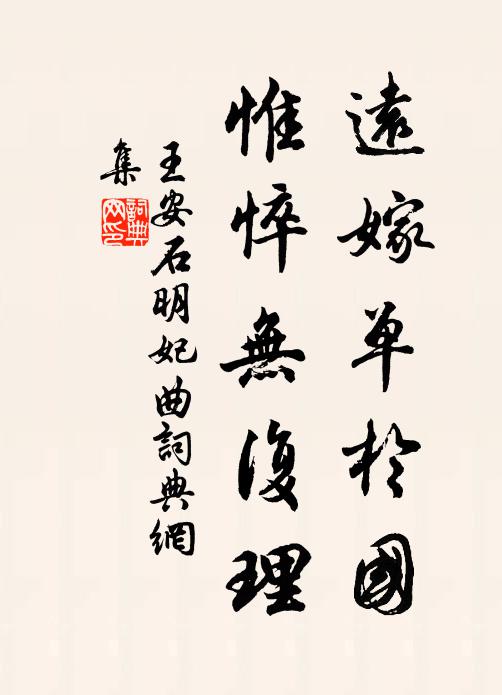 遠嫁单於國
惟悴無復理
王安石明妃曲詞典網
集
詞典
网印